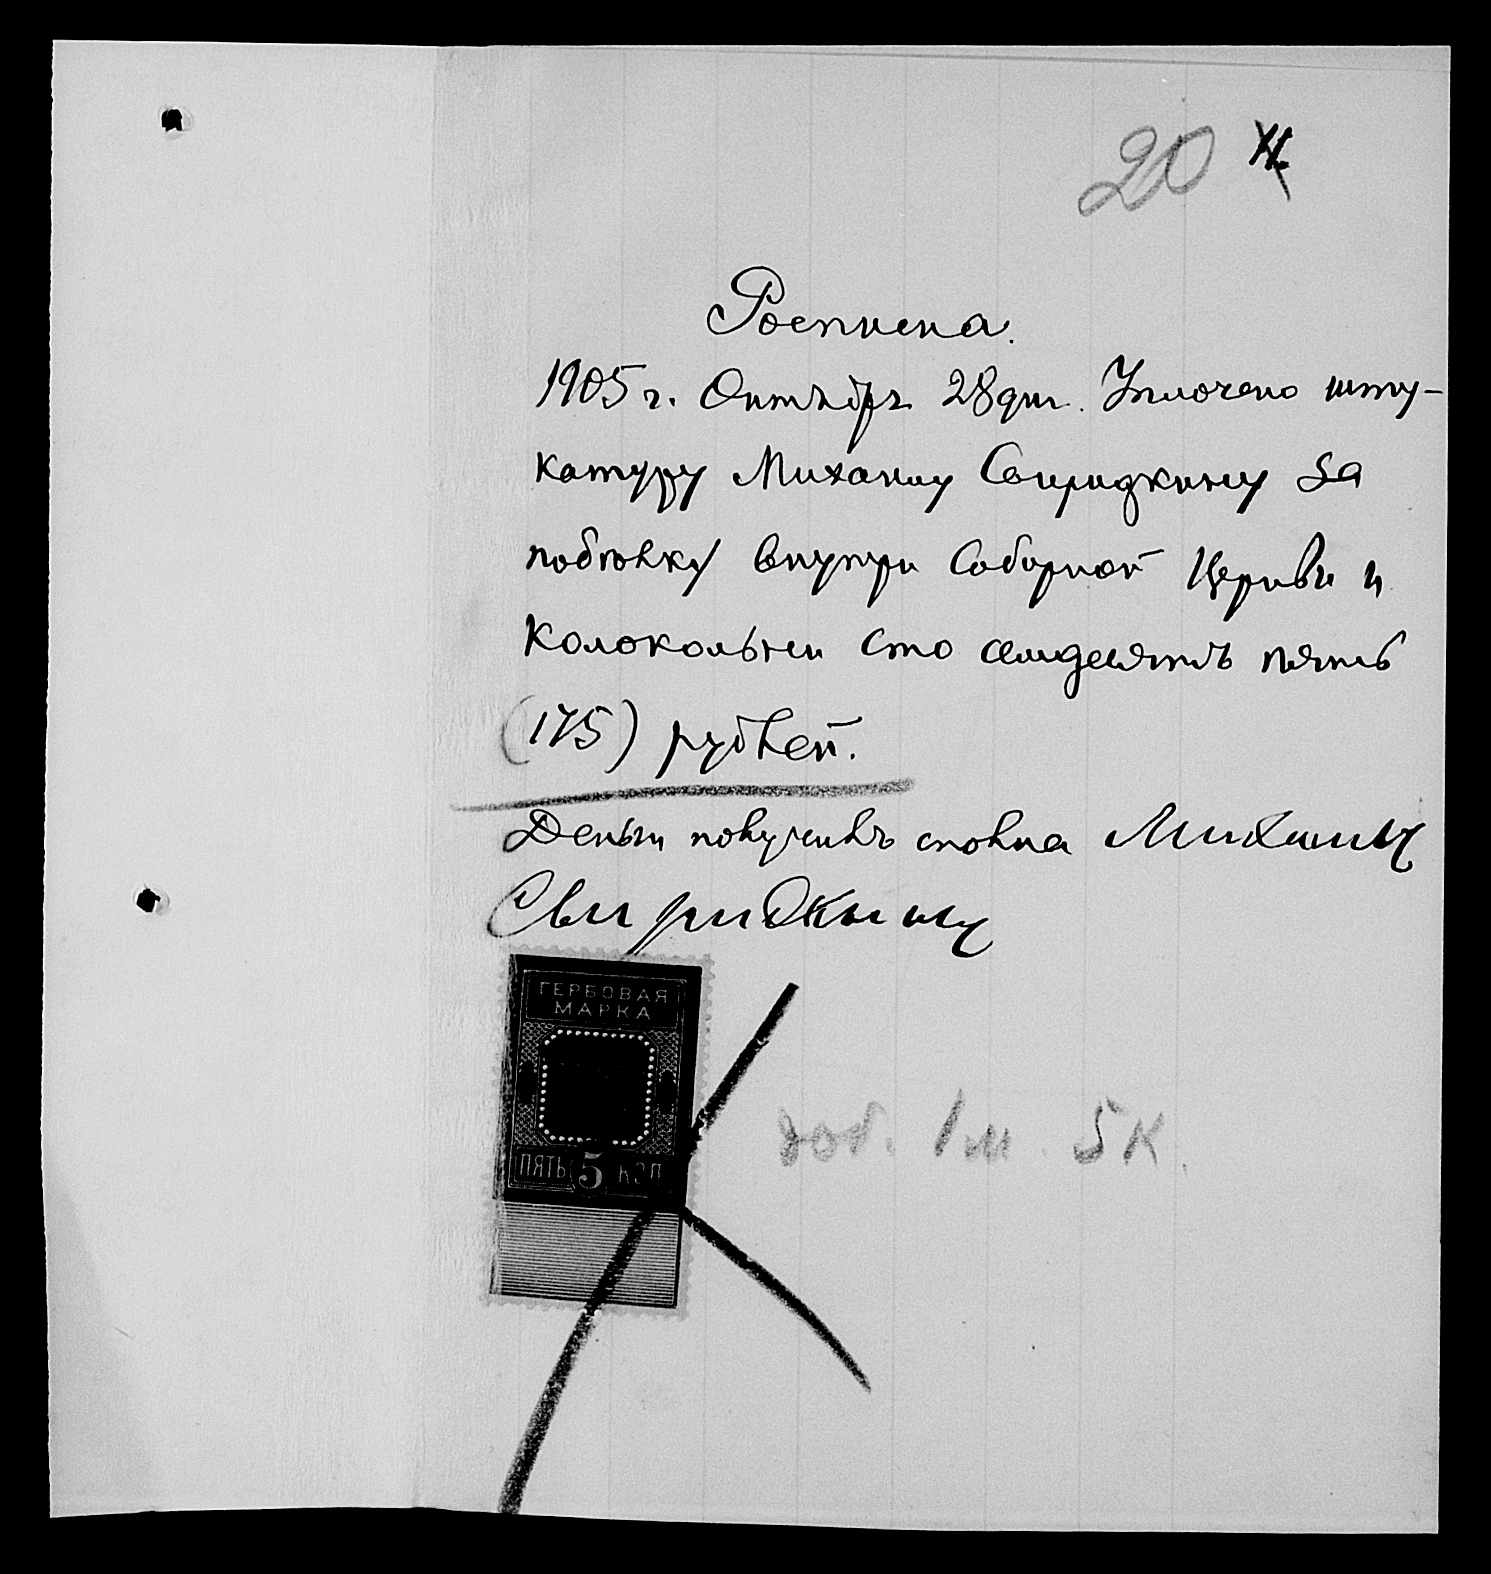 20
Росписка.
1905 г. Октябрь 28 дня. Уплочено шту-
катуру Михаилу Свиридкину за
побѣлку внутри Соборной Церкви и
Колокольни сто семдесятъ пять
(175) рублей.
Деньги получилъ сполна Михаилъ
Свиридкинъ
ГЕРБОВАЯ
МАРКА
ПЯТЬ 5 КОП
доб. 1 м. 5 к.